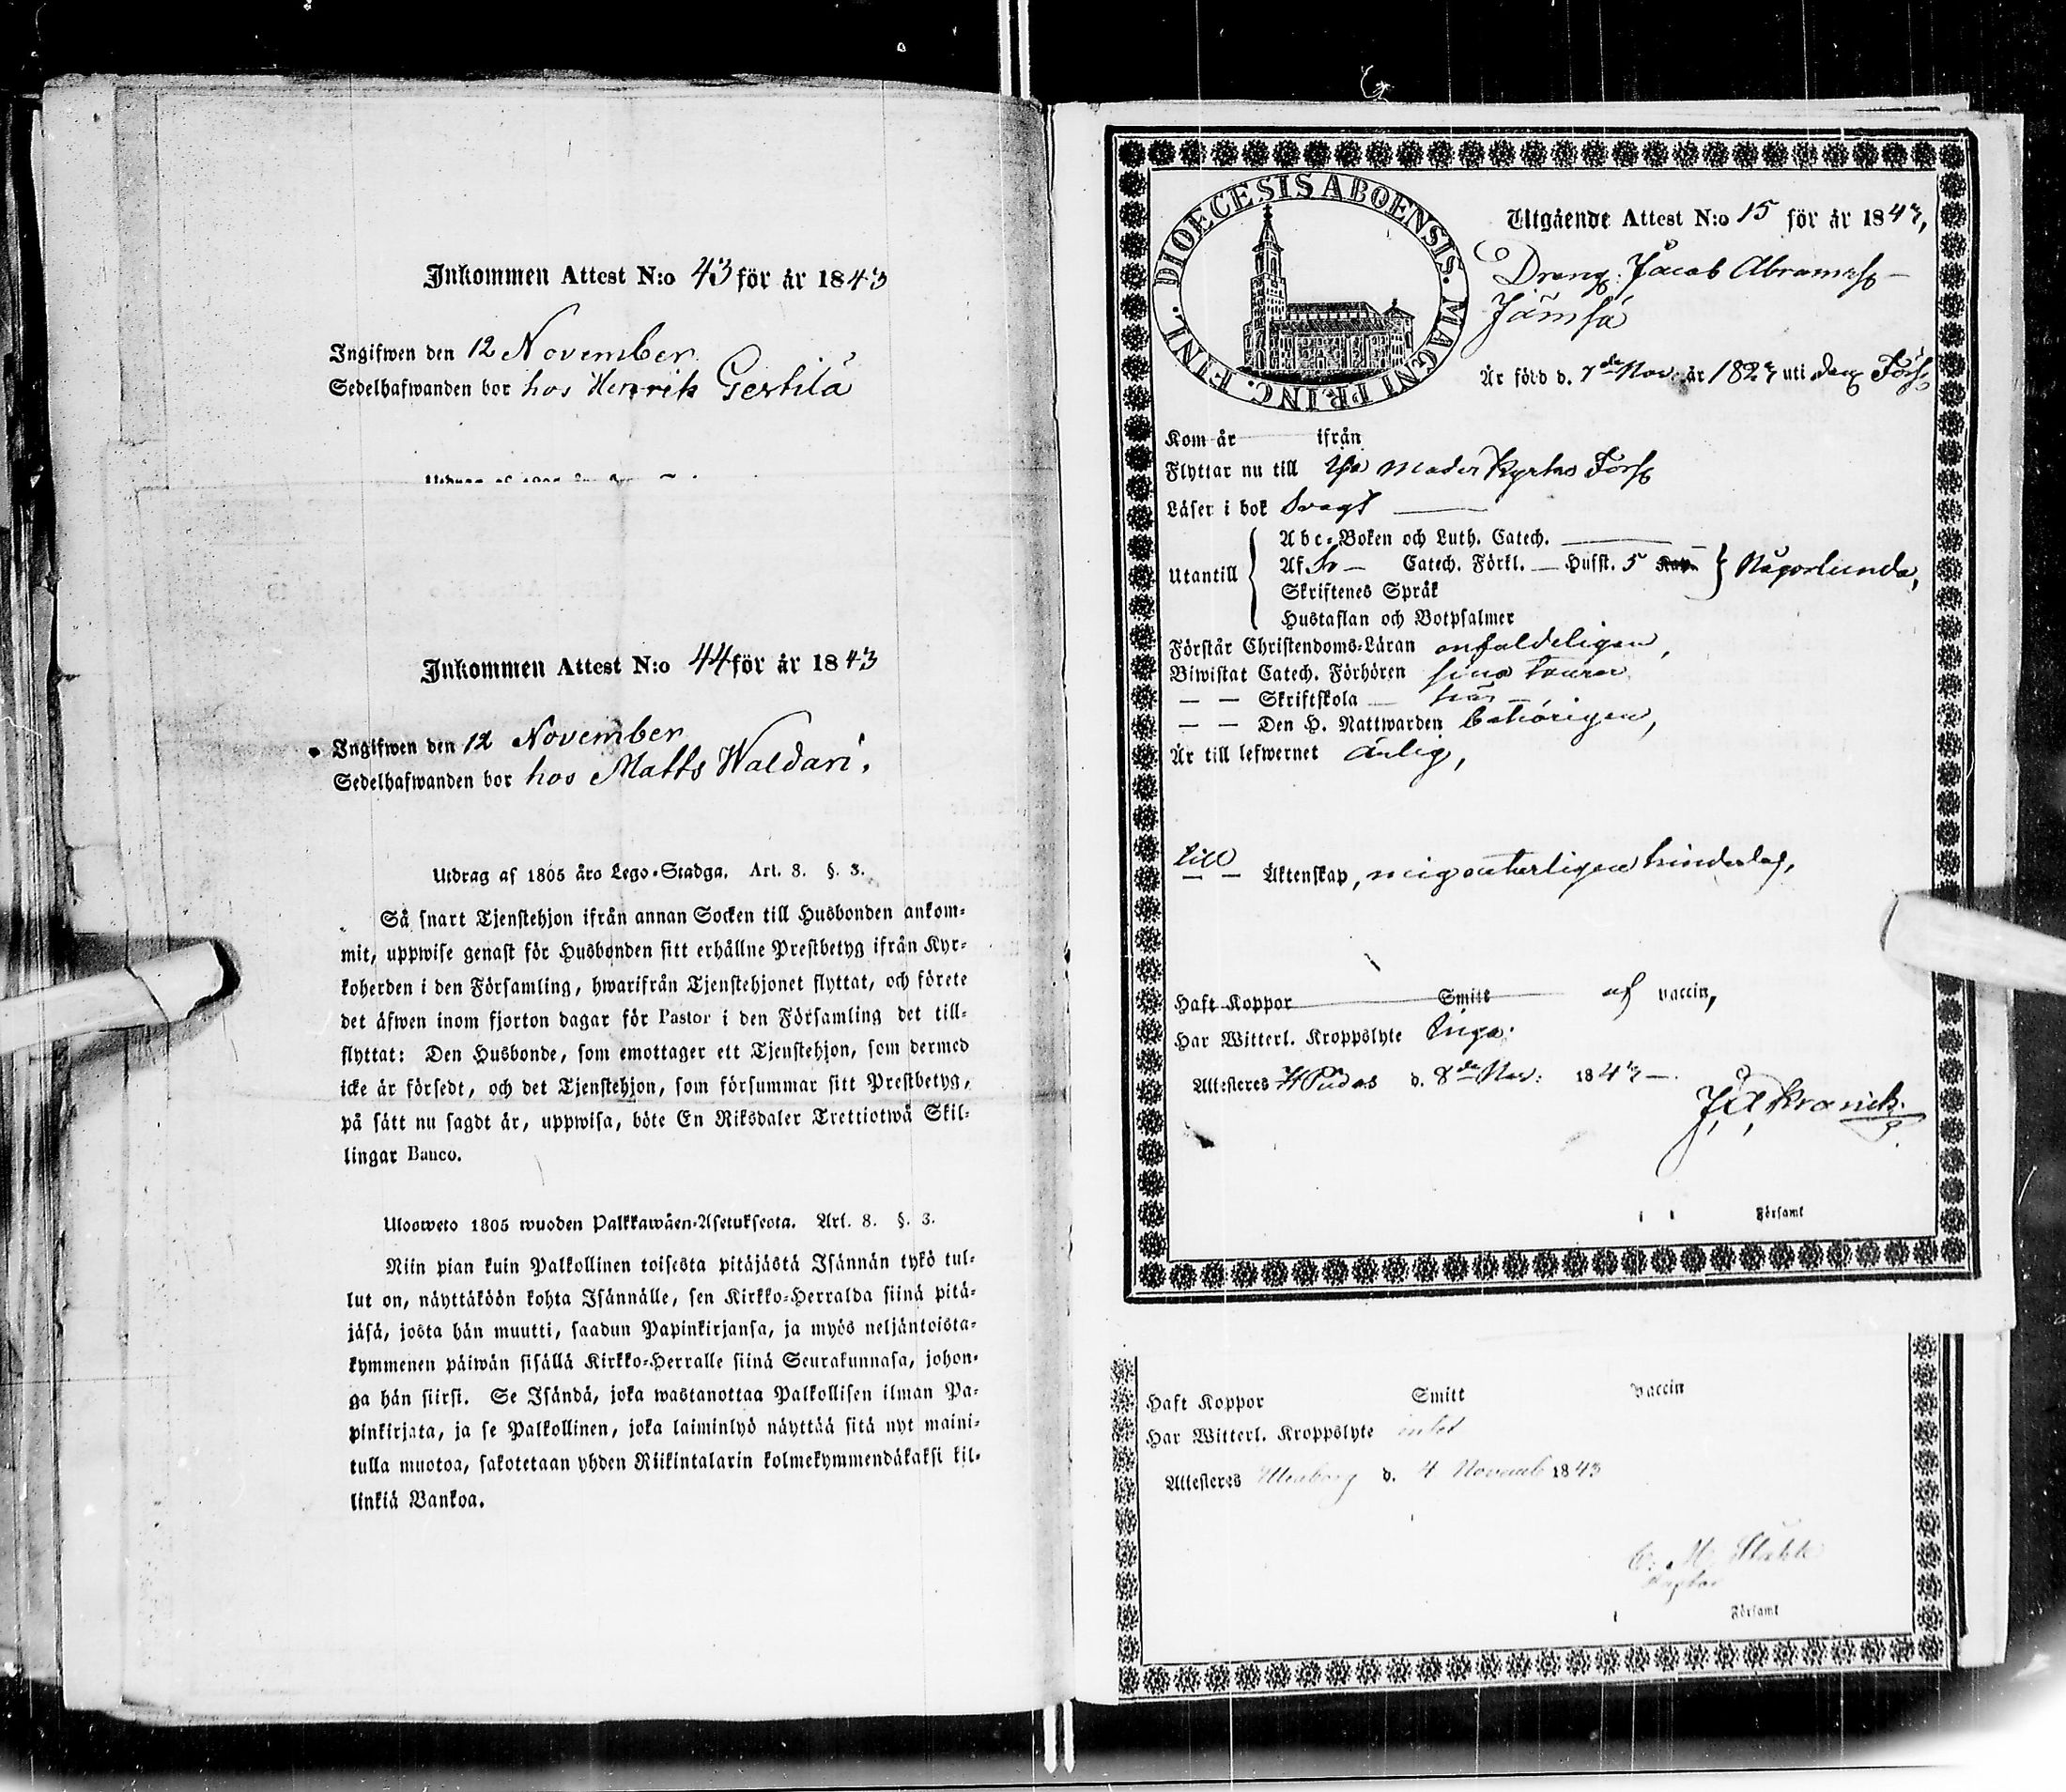 Inkommen Attest N:o 43 för år 1843
Ingifwen den 12 November
Sedelhafwanden bor hos Henrik Gertilä
Inkommen Attest N:o 44 för år 1843
Ingifwen den 12 November
Sedelhafwanden bor hos Matts Waldari.
Utdrag af 1805 års Lego-Stadga. Art. 8. §. 3.
Så snart Tjenstehjon ifrån annan Socken till Husbonden ankom-
mit, uppwise genast för Husbonden sitt erhållne Prestbetyg ifrån Kyr-
koherden i den Församling, hwarifrån Tjenstehjonet flyttat, och förete
det äfwen inom fjorton dagar för Pastor i den Församling det till-
flyttat: Den Husbonde, som emottager ett Tjenstehjon, som dermed
icke är försedt, och det Tjenstehjon, som försummar sitt Prestbetyg,
på sätt nu sagdt är, uppwisa, böte En Riksdaler Trettiotwå Skil-
lingar Banco.
Ulosweto 1805 wuoden Palkkawäen-Asetuksesta. Art. 8. §. 3.
Niin pian kuin Palkollinen toisesta pitäjästä Isännän tykö tul-
lut on, näyttäköön kohta Isännälle, sen Kirkko-Herralda siinä pitä-
jäsä, josta hän muutti, saadun Papinkirjansa, ja myös neljäntoista-
kymmenen päiwän sisällä Kirkko-Herralle siinä Seurakunnasa, johon-
ga hän siirsi. Se Isändä, joka wastanottaa Palkollisen ilman Pa-
pinkirjata, ja se Palkollinen, joka laiminlyö näyttää sitä nyt maini-
tulla muotoa, sakotetaan yhden Riikintalarin kolmekymmendäkaksi kil-
linkiä Bankoa.
DIOECESIS ABOENSIS. MAGNI PRINC. FINL.
Utgående Attest N:o 15 för år 1843,
Dreng. Jacob Abramss
Jämsä
Är född d. 7de Nov. år 1823 uti denz Förs
Kom år ifrån
Flyttar nu till Moder Kyrko Förs
Läser i bok Svagt
Utantill
Abc-Boken och Luth. Catech.
Af Catech. Förkl. — Husst. 5 Någorlunda,
Skriftenes Språk
Hustaflan och Botpsalmer
Förstår Christendoms-Läran enfaldeligen,
Biwistat Catech. Förhören sina tourer
— — Skriftskola
— — Den H. Nattwarden behörigen,
Är till lefwernet ärlig,
till Äktenskap, mig veterligen hinderlös,
Haft Koppor Smitt af vaccin,
Har Witterl. Kroppslyte Inga.
Attesteres H Pudas d. 8de Nov: 1843
J A Kranck.
i Församl
Haft Koppor Smitt vaccin
Har Witterl. Kroppslyte intet
Attesteres Uleaborg d. 4 Novemb 1843
i Församl